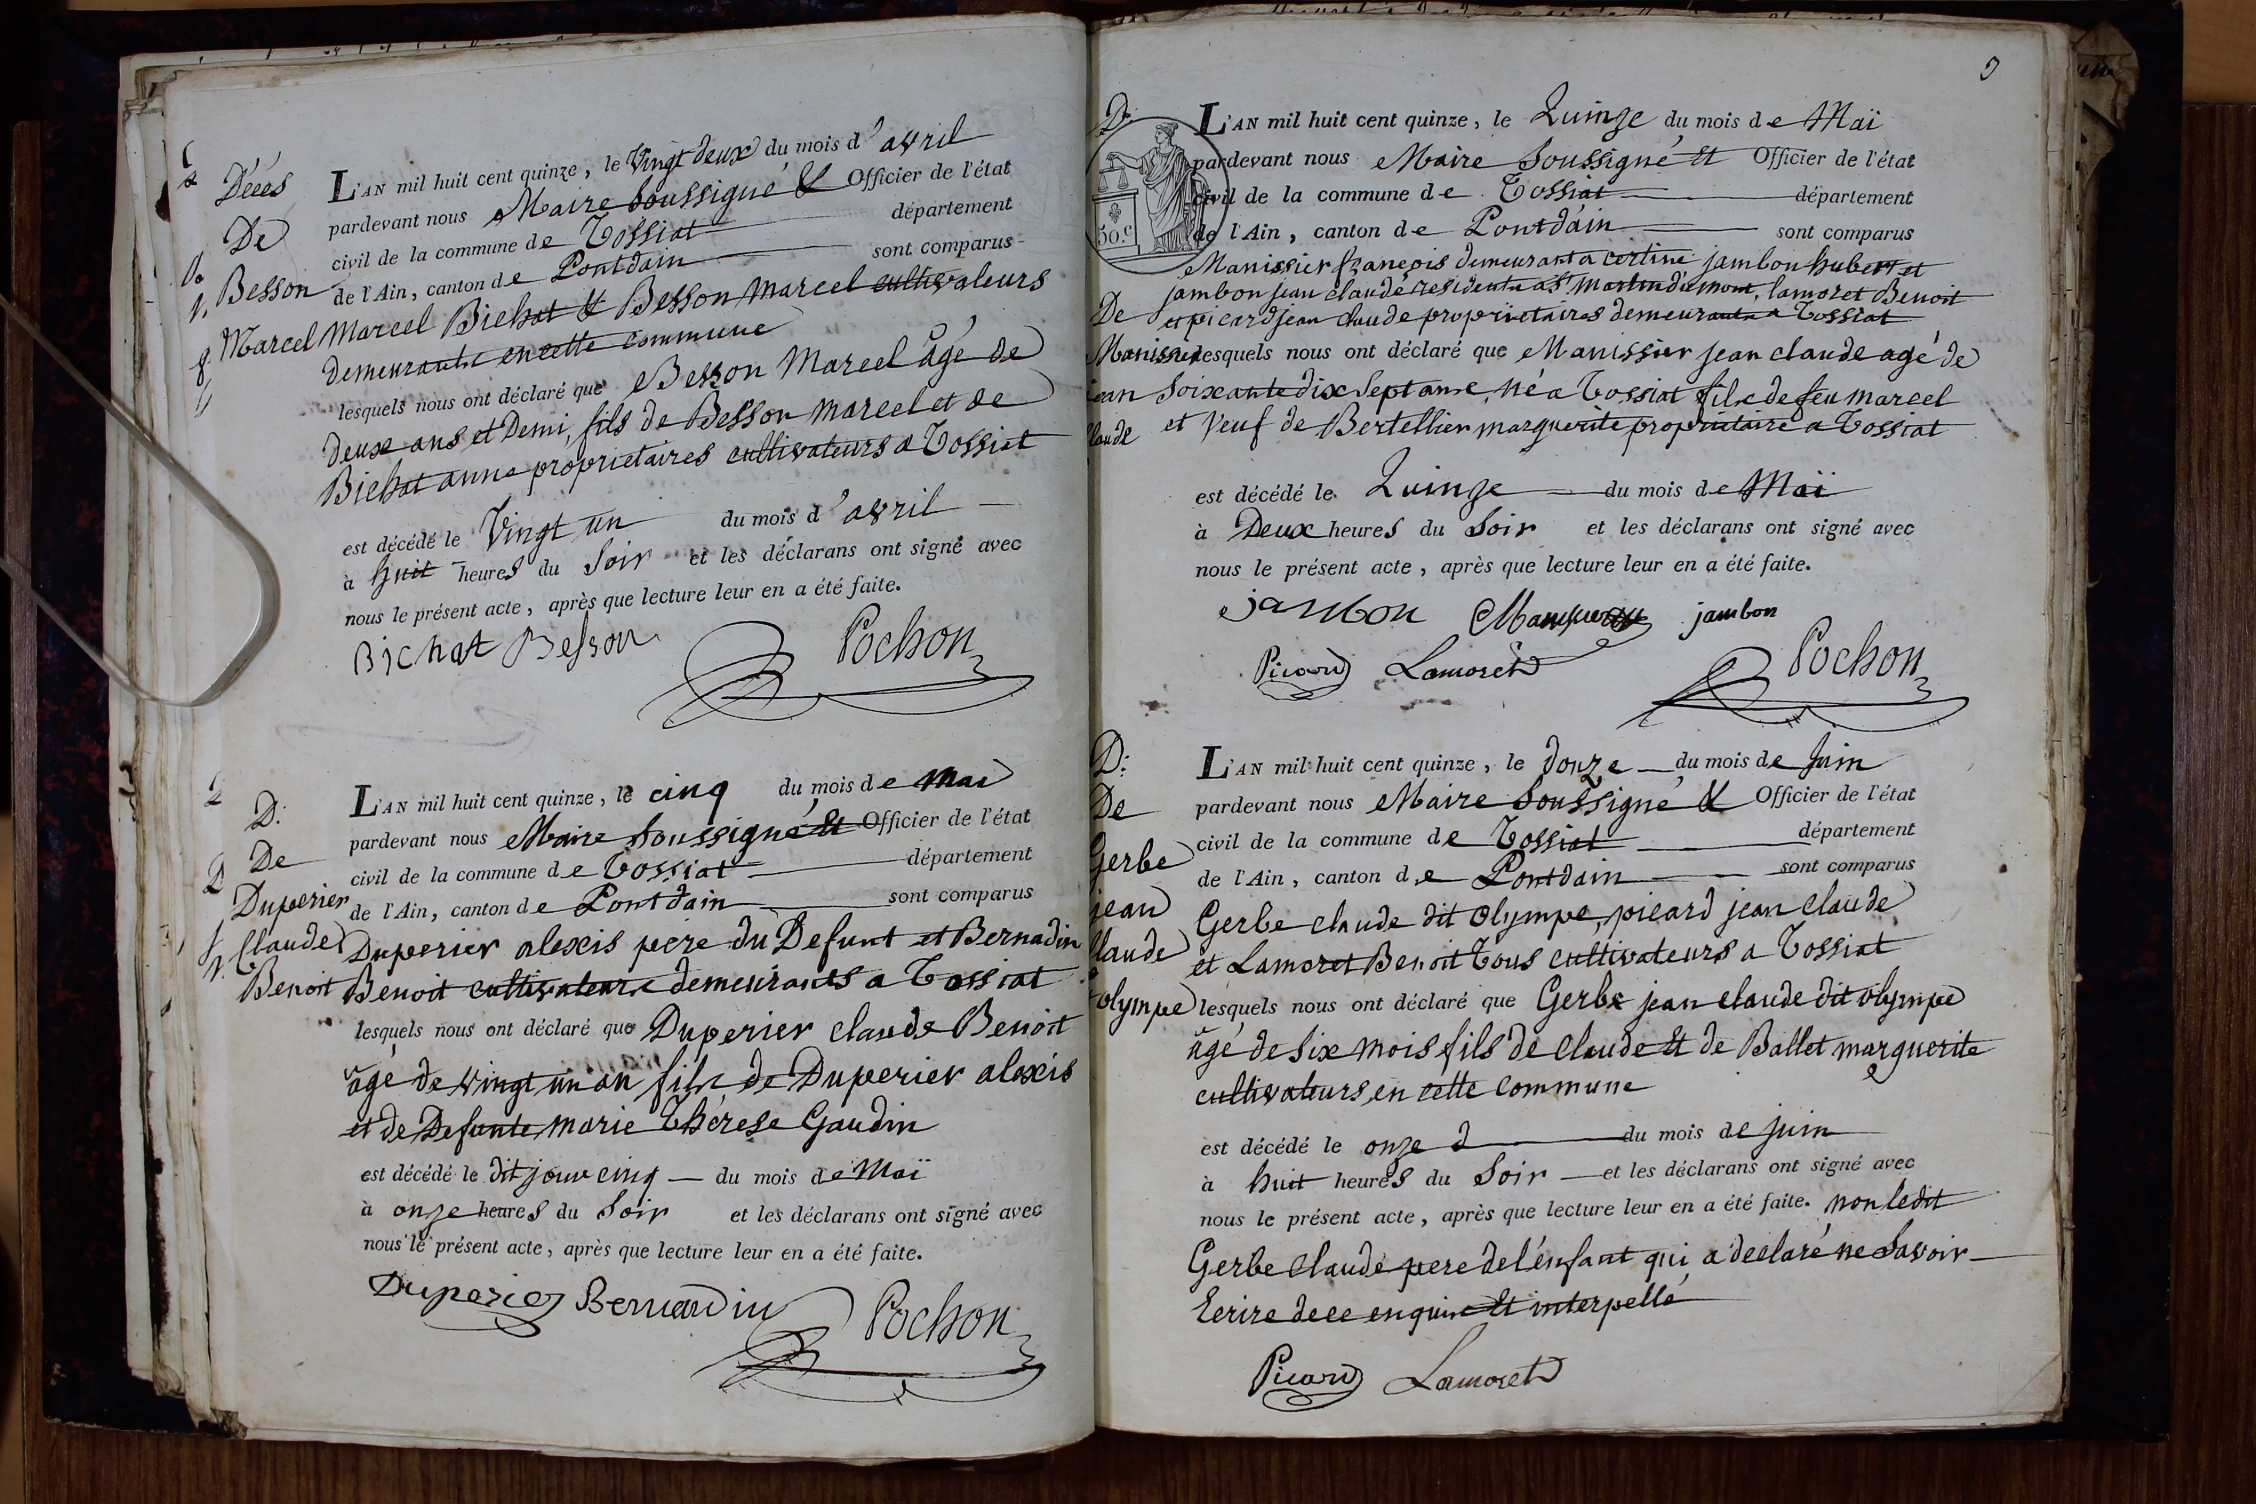 Décès
De
Besson
Marcel
L'AN mil huit cent quinze, le Vingt deux du mois d'avril
pardevant nous Maire soussigné & Officier de l'état
civil de la commune de Tossiat département
de l'Ain, canton de Pontdain sont comparus
Marcel Bichat & Besson Marcel cultivateurs
demeurants en cette commune
lesquels nous ont déclaré que Besson Marcel âgé de
deux ans et Demi, fils de Besson marcel et de
Bichat anne proprietaires cultivateurs a Tossiat
est décédé le Vingt un du mois d'avril
à huit heures du Soir et les déclarans ont signé avec
nous le présent acte, après que lecture leur en a été faite.
Bichat Besson Pochon
D:
De
Duperier
Claude
Benoit
L'AN mil huit cent quinze, le cinq du mois de Mai
pardevant nous Maire Soussigné Et Officier de l'état
civil de la commune de Tossiat département
de l'Ain, canton de Pontdain sont comparus
Duperier alexis pere du Defunt et Bernadin
Benoit cultivateurs demeurants a Tossiat
lesquels nous ont déclaré que Duperier claude Benoit
âgé de vingt un an fils de Duperier alexis
et de Defunte marie Thérese Gaudin
est décédé le dit jour cinq du mois de Maï
à onze heures du Soir et les déclarans ont signé avec
nous le présent acte, après que lecture leur en a été faite.
Duperier Bernardin Pochon
3
50.c
D:
De
Manissier
jean
Claude
L'AN mil huit cent quinze, le Quinze du mois de Maï
pardevant nous Maire Soussigné Et Officier de l'état
civil de la commune de Tossiat département
de l'Ain, canton de Pontdain sont comparus
Manissier françois demeurant a certine jambon hubert et
jambon jean claude residents a St martin du mont, lamoret Benoit
et picard jean claude propriétaires demeurants a Tossiat
lesquels nous ont déclaré que Manissier jean claude agé de
Soixante dix Sept ans, né a Tossiat fils de feu marcel
et Veuf de Bertellier marguerite propriétaire a Tossiat
est décédé le Quinze du mois de Maï
à Deux heures du Soir et les déclarans ont signé avec
nous le présent acte, après que lecture leur en a été faite.
jambon Manissier jambon
Picard Lamoret Pochon
D:
De
Gerbe
jean
Claude
olympe
L'AN mil huit cent quinze, le douze du mois de Juin
pardevant nous Maire Soussigné & Officier de l'état
civil de la commune de Tossiat département
de l'Ain, canton de Pontdain sont comparus
Gerbe claude dit olympe, picard jean claude
et Lamoret Benoit Tous cultivateurs a Tossiat
lesquels nous ont déclaré que Gerbe jean claude dit olympe
âgé de six mois fils de claude Et de Ballet marguerite
cultivateurs en cette commune
est décédé le onze d du mois de juin
à huit heures du Soir et les déclarans ont signé avec
nous le présent acte, après que lecture leur en a été faite. non ledit
Gerbe claude pere de l'énfant qui a declaré ne Savoir
Ecrire de ce enquis Et interpellé
Picard Lamoret